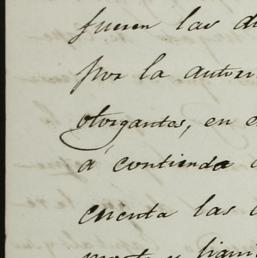 fueren las d
por la autor
otorgantes, en e
á contienda
cuenta las